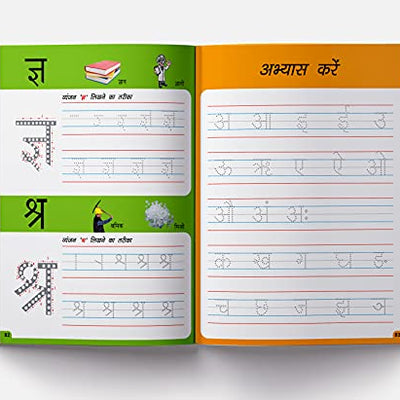 ज्ञ
ज्ञान ज्ञानी
व्यंजन 'ज्ञ' लिखने का तरीका
ज्ञ
ज्ञ ज्ञ ज्ञ ज्ञ
श्र
श्रमिक मिश्री
व्यंजन 'श्र' लिखने का तरीका
श्र
श्र श्र
श्र श्र श्र श्र श्र
अभ्यास करें
अ आ इ ई उ
ऊ ऋ ए ऐ ओ
औ अं अः
क ख ग घ ङ
च छ ज झ ञ